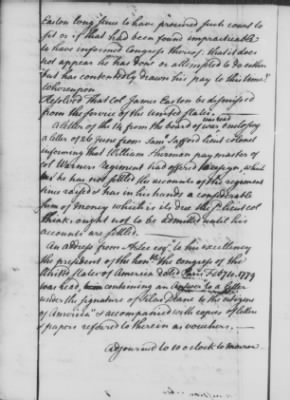 Easton long since to have procured such court to
sit or if that had been found impracticable
to have informed Congress thereof. What it does
not appear he has done or attempted to do either
but has contentedly drawn his pay to this time!
Whereupon
Resolved That Col James Easton be dismissed
from the service of the United States.
A letter of the 14 from the board of war was read enclosing
a letter of 26 June from Saml Safford lieut colonel
informing that William Sherman pay master of
Col Warners Regiment had offered to resign, which
he has not settled the accounts of the regiment
since raised & has in his hands a considerable
sum of money which is due the lieut col
thinks ought not to be admitted until his
accounts are settled.
An address from esqr to his excellency
the president of the honble the congress of the
United States of America dated Feby 10. 1779
was read, containing an Answer to a letter
under the signature of Silas Deane to the citizens
of America" & accompanied with copies of letters
& papers referred to therein as vouchers.
Adjourned to 10 o clock to morrow